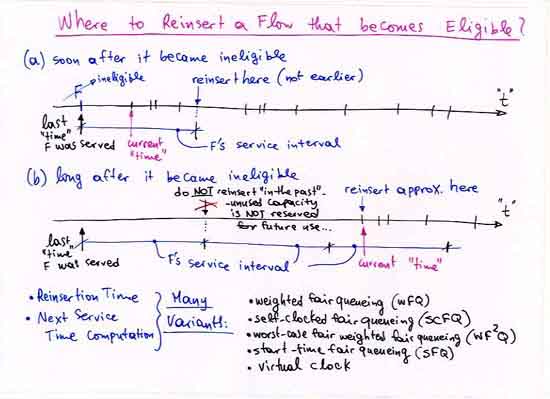 Where to Reinsert a Flow that becomes Eligible?
(a) soon after it became ineligible
ineligible
F
reinsert here (not earlier)
"t"
last
"time"
F was served
current
"time"
F's service interval
(b) long after it became ineligible
do NOT reinsert "in the past" -
- unused capacity
is NOT reserved
for future use...
reinsert approx. here
"t"
last
"time"
F was served
F's service interval
current "time"
• Reinsertion Time
• Next Service
Time Computation
Many
Variants:
• weighted fair queueing (WFQ)
• self-clocked fair queueing (SCFQ)
• worst-case fair weighted fair queueing (WF²Q)
• start-time fair queueing (SFQ)
• virtual clock